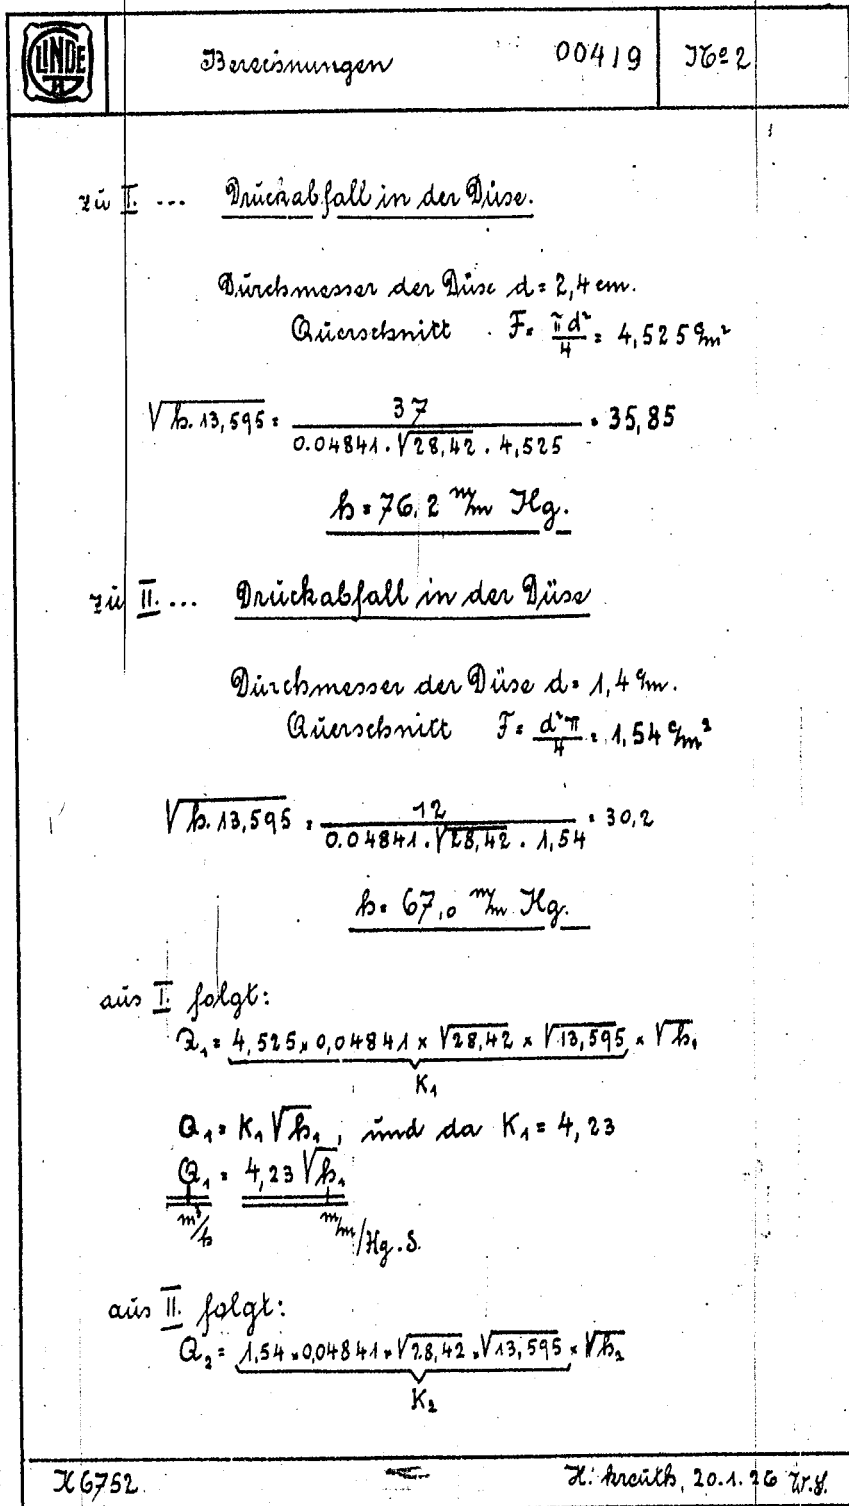 LINDE
Berechnungen 00419 No 2
zu I. ... Druckabfall in der Düse.
Durchmesser der Düse d = 2,4 cm.
Querschnitt F = πd²/4 = 4,525 cm²
√h.13,595 = 37 / 0.04841.√28,42 . 4,525 = 35,85
h = 76,2 m/m Hg.
zu II. ... Druckabfall in der Düse
Durchmesser der Düse d = 1,4 cm.
Querschnitt F = d²π/4 = 1,54 cm²
√h.13,595 = 12 / 0.04841.√28,42 . 1,54 = 30,2
h = 67,0 m/m Hg.
aus I. folgt:
Q₁ = 4,525 × 0,04841 × √28,42 × √13,595 × √h₁
K₁
Q₁ = K₁ √h₁, und da K₁ = 4,23
Q₁ = 4,23 √h₁
m³/h m/m/Hg.S.
aus II. folgt:
Q₂ = 1,54 × 0,04841 × √28,42 × √13,595 × √h₂
K₂
6752 20.1.26